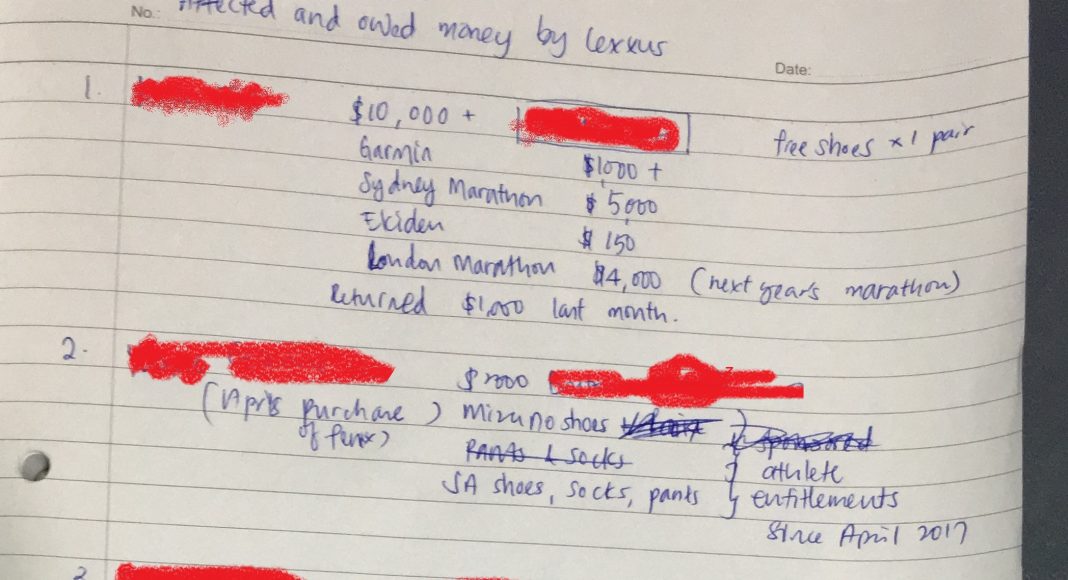 No.: Affected and owed money by lexxus
Date:
1. $10,000 + free shoes x 1 pair
Garmin $1000 +
Sydney Marathon $5,000
Ekiden $150
London Marathon $4,000 (next year's marathon)
Returned $1,000 last month.
2. $2000
(April's purchase ) Mizuno shoes
pants & socks athlete
SA shoes, socks, pants entitlements
since April 2017
3